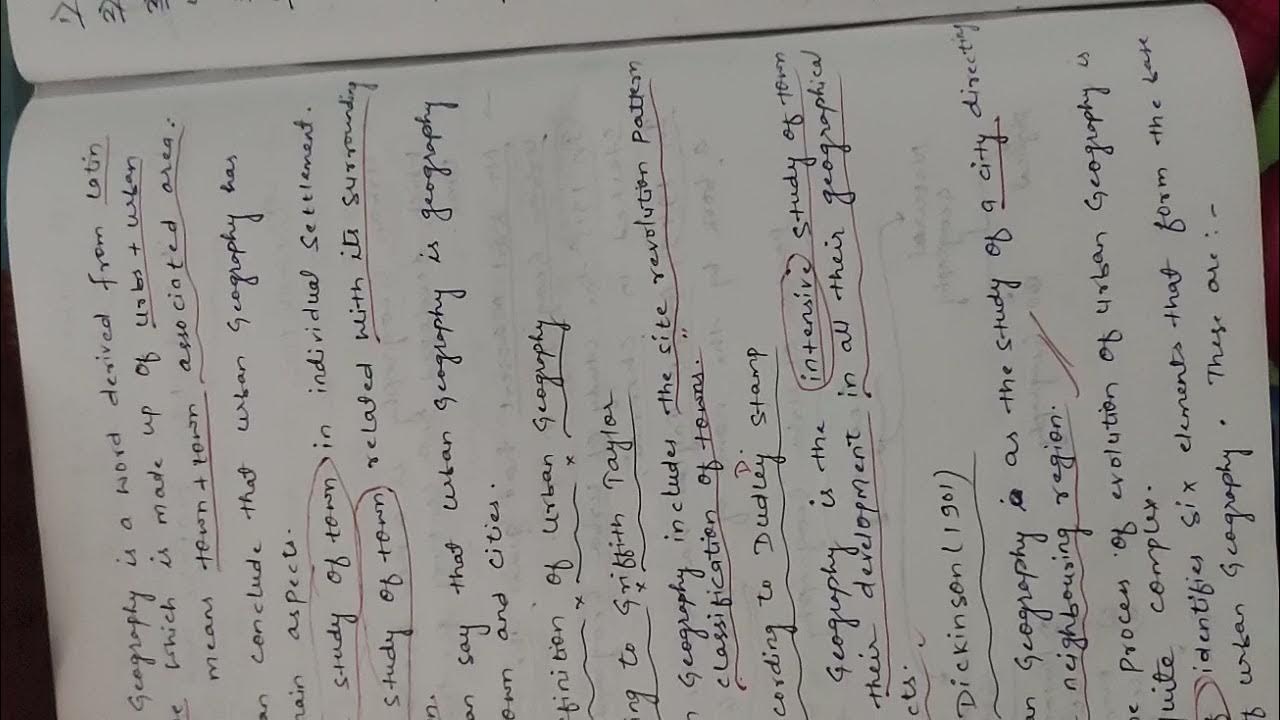 1)
2)
3)
Geography is a word derived from Latin
which is made up of urbs + urban
means town + town associated area.
conclude that urban Geography has
aspects.
study of town in individual settlement.
study of town related with its surrounding
say that urban Geography is geography
and cities.
finition of Urban Geography.
ing to Griffith Taylor
Geography includes the site revolution Pattern
classification of towns."
cording to Dudley D. Stamp
Geography is the intensive study of town
their development in all their geographical
cts.
Dickinson (1901)
an Geography is as the study of a city directing
neighbouring region.
process of evolution of urban Geography is
complex.
identifies six elements that form the base
urban Geography. These are :-